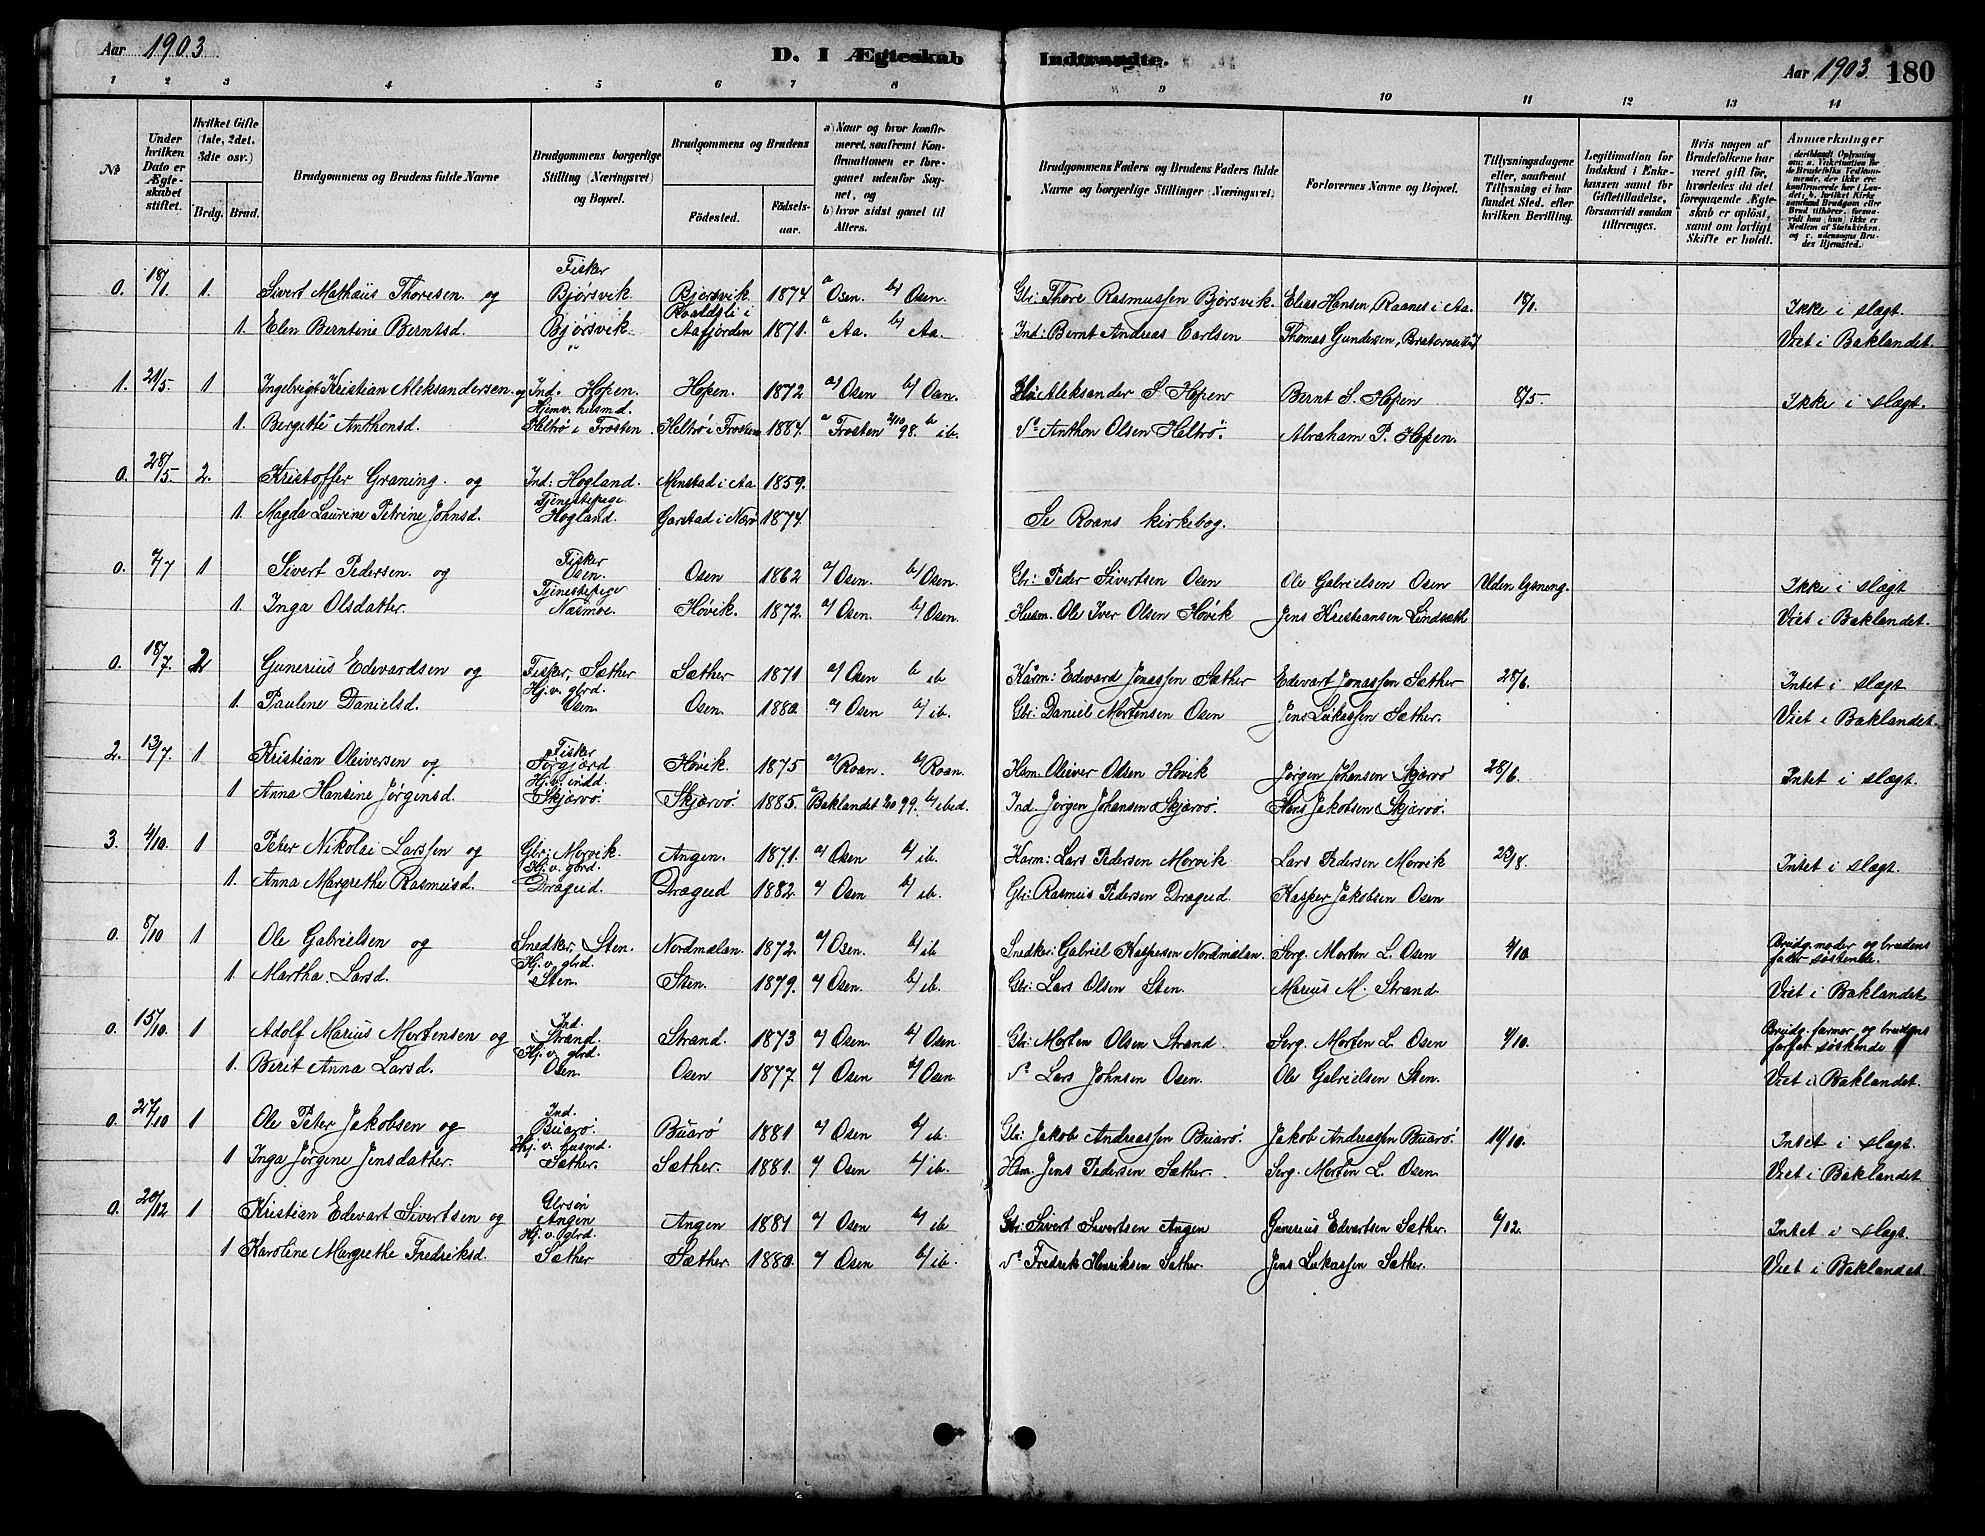 Aar 1903.
D. I Ægteskab Indtraadte.
Aar 1903. 180
1 2 3 4 5 6 7 8 9 10 11 12 13 14
No
Under hvilken Dato er Ægteskabet stiftet.
Hvilket Gifte (1ste, 2det, 3die osv.)
Brdg. Brud.
Brudgommens og Brudens fulde Navne
Brudgommens borgerlige Stilling (Næringsvei) og Bopæl.
Brudgommens og Brudens
Födested.
Födselsaar.
a) Naar og hvor konfirmeret, saafremt Konfirmationen er foregaaet udenfor Sognet, og
b) hvor sidst gaaet til Alters.
Brudgommens Faders og Brudens Faders fulde Navne og borgerlige Stillinger (Næringsvei).
Forlovernes Navne og Bopæl.
Tillysningsdagene eller, saafremt Tillysning ei har fundet Sted, efter hvilken Bevilling.
Legitimation for Indskud i Enkekassen samt for Giftetilladelse, forsaavidt saadan tiltrænges.
Hvis nogen af Brudefolkene har været gift før, hvorledes da det foregaaende Ægteskab er opløst, samt om lovligt Skifte er holdt.
Anmærkninger
0. 18/1 1. Sivert Mathæus Thoresen og Fisker Bjørsvik. Bjørsvik 1874 a Osen. b/ Osen. Gbr: Thore Rasmussen Bjørsvik. Elias Hansen Raanes i Aa. 18/1. Ikke i slægt.
1. Elen Berntine Berntsd. Bjørsvik Aafjorden 1871. a Aa. b/ Aa. Ind: Bernt Andreas Carlsen Thomas Gundersen, Viet i Baklandet.
1. 21/5 1 Ingebrigt Kristian Aleksandersen og Ind. Hopen. Hopen. 1872 a/ Osen b/ Osen. Aleksander S. Hopen Bernt S. Hopen 8/5. Ikke i slægt.
1. Bergitte Anthonsd. Hjemv. husmd. Heltrø i Frosten. Heltrø i Frosten 1884. a Frosten 2/10 98. b ib. Anthon Olsen Heltrø. Abraham P. Hopen.
0. 28/5. 2. Kristoffer Graning. og Ind: Hogland. Monstad i Aa 1859.
1. Magda Laurine Petrine Johnsd. Tjenestepige Hogland. Garstad i Nærø 1874. Se Roans kirkebog.
0. 7/7 1 Sivert Pedersen. og Fisker Osen. Osen 1862 a/ Osen. b/ Osen. Gbr: Peder Sivertsen Osen Ole Gabrielsen Osen Uden lysning. Ikke i slægt
1. Inga Olsdatter. Tjenestepige Næsmoe. Høvik. 1872. a/ Osen. b/ Osen. Husm. Ole Iver Olsen Høvik Jens Kristiansen Sundsæth Viet i Baklandet.
0. 18/7. 2 Gunerius Edevardsen og Fisker, Sæther Sæther 1871 a/ Osen b ib Kårm: Edevard Jonassen Sæther Edevart Jonassen Sæther 28/6. Intet i slægt
1. Pauline Danielsd. Hj.v. gbrd. Osen. Osen. 1880. a/ Osen b/ ib. Gbr: Daniel Mortensen Osen Jens Lukassen Sæther. Viet i Baklandet.
2. 13/7. 1 Kristian Oliversen og Fisker Høvik. 1875 a/ Roan. b/ Roan. Hsm. Oliver Olsen Høvik Jørgen Johansen Skjærvø 28/6. Intet i slægt.
1 Anna Hansine Jørgensd. Hj.v. indd. Skjærvø. Skjærvø. 1885. a Baklandet 99. b/ ibid. Ind. Jørgen Johansen Skjærvø. Hans Jakobsen Skjærvø.
3. 4/10. 1 Peter Nikolai Larssen og Gbr: Morvik. Angen. 1871. a/ Osen b/ ib. Kårm: Lars Pedersen Morvik Lars Pedersen Morvik Intet i slægt.
1. Anna Margrethe Rasmusd. Hj.v. gbrd. Dragud. Dragud 1882. a/ Osen b/ ib. Gbr: Rasmus Pedersen Dragud Kasper Jakobsen Osen
0. 8/10 1 Ole Gabrielsen og Snedker, Sten. Nordmælan. 1872. a/ Osen. b/ ib Snedker: Gabriel Kaspersen Nordmælan Serg. Morten L. Osen 4/10. Brudg. moder og brudens fader søskende.
1 Martha. Larsd. Hj.v. gbrd. Sten. Sten. 1879. a/ Osen. b/ ib. Gbr: Lars Olsen Sten. Marius M. Strand. Viet i Baklandet.
0. 15/10. 1 Adolf Marius Mortensen og Ind. Strand. Strand. 1873 a/ Osen b/ Osen Gbr: Morten Olsen Strand. Serg. Morten L. Osen 4/10. Brudg. farmor og brudens farfar søskende
1. Berit Anna Larsd. Hj.v. gbrd. Osen. Osen 1877. a/ Osen b/ Osen. Lars Johnsen Osen. Ole Gabrielsen Sten. Viet i Baklandet.
0. 27/10 1 Ole Peter Jakobsen og Ind. Buarø. Buarø 1881 a/ Osen b/ ib. Gbr: Jakob Andreassen Buarø. Jakob Andreassen Buarø. 11/10. Intet i slægt.
1 Inga Jørgine Jensdatter. Hj.v. husmd. Sæther. Sæther. 1881. a/ Osen b/ ib. Hsm. Jens Pedersen Sæther. Serg. Morten L. Osen. Viet i Baklandet
0. 20/12 1 Kristian Edevart Sivertsen og Gbrsøn Angen Angen 1881 a/ Osen b/ ib Gbr: Sivert Sivertsen Angen Gunerius Edvartsen Sæther. 6/12. Intet i slægt.
1 Karoline Margrethe Fredriksd. Hj.v. gbrd. Sæther Sæther. 1880. a/ Osen b/ ib. Fredrik Henriksen Sæther. Jens Lukassen Sæther. Viet i Baklandet.